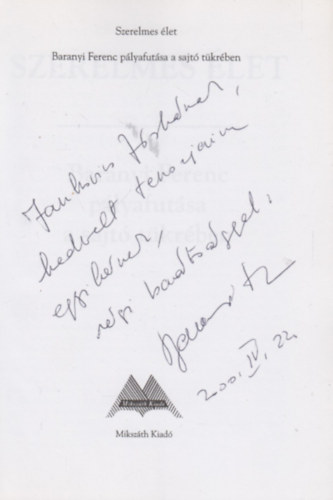 Szerelmes élet
Baranyi Ferenc pályafutása a sajtó tükrében
SZERELMES ÉLET
Baranyi Ferenc
pályafutása
a sajtó tükrében
Jankovics Józsefnek,
kedvelt tenorjaim
egyikének,
régi barátsággal,
Baranyi F.
2001. IV. 22.
Mikszáth Kiadó
Mikszáth Kiadó